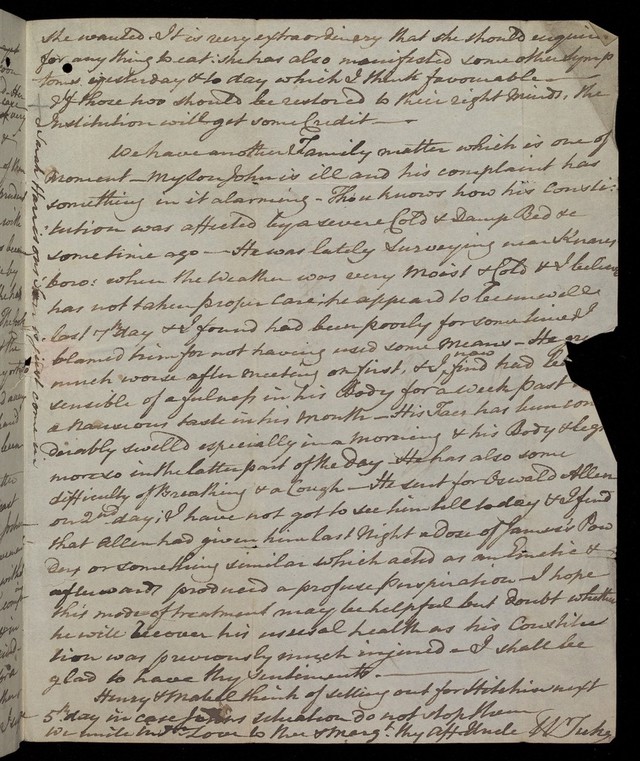 she wanted. It is very extraordinary that she should enquire
for any thing to eat: she has also manifested some other Symp
toms, yesterday & to day which I think favourable —
If those two should be restored to their right Minds, the
Institution will get some Credit —
We have another Family matter which is one of
moment — My Son John is ill and his complaint has
something in it alarming — Thou knows how his Consti:
tution was affected by a severe Cold & Damp Bed &c
some time ago — He was lately Surveying near Knares
boro: when the Weather was very Moist & Cold & I believe
has not taken proper care: he appeared to be unwell
last 7th day & I found had been poorly for some time & I
blamed him for not having used some means — He grew
much worse after meeting on first, & I now find had been
sensible of a fulness in his Body for a week past
a nauseous taste in his Mouth — His Face has been con
derably swell'd especially in a morning & his Body & Legs
more so in the latter part of the day. He has also some
difficulty of Breathing & a Cough — He sent for Oswald Allen
on 2nd day; I have not got to see him till to day & I find
that Allen had given him last Night a Dose of James's Pow
ders or something similar which acted as an Emetic &
afterwards produced a profuse Perspiration — I hope
this mode of treatment may be helpful but doubt whether
he will recover his ususal health as his Constitu
tion was previously much injured — I shall be
glad to have thy Sentiments. —
Henry & Mabell think of setting out for Hitchin next
5th day in case Johns situation do not stop them
We unite in Love to thee thy Aff. Uncle W Tuke
Sarah Harrisons just come in